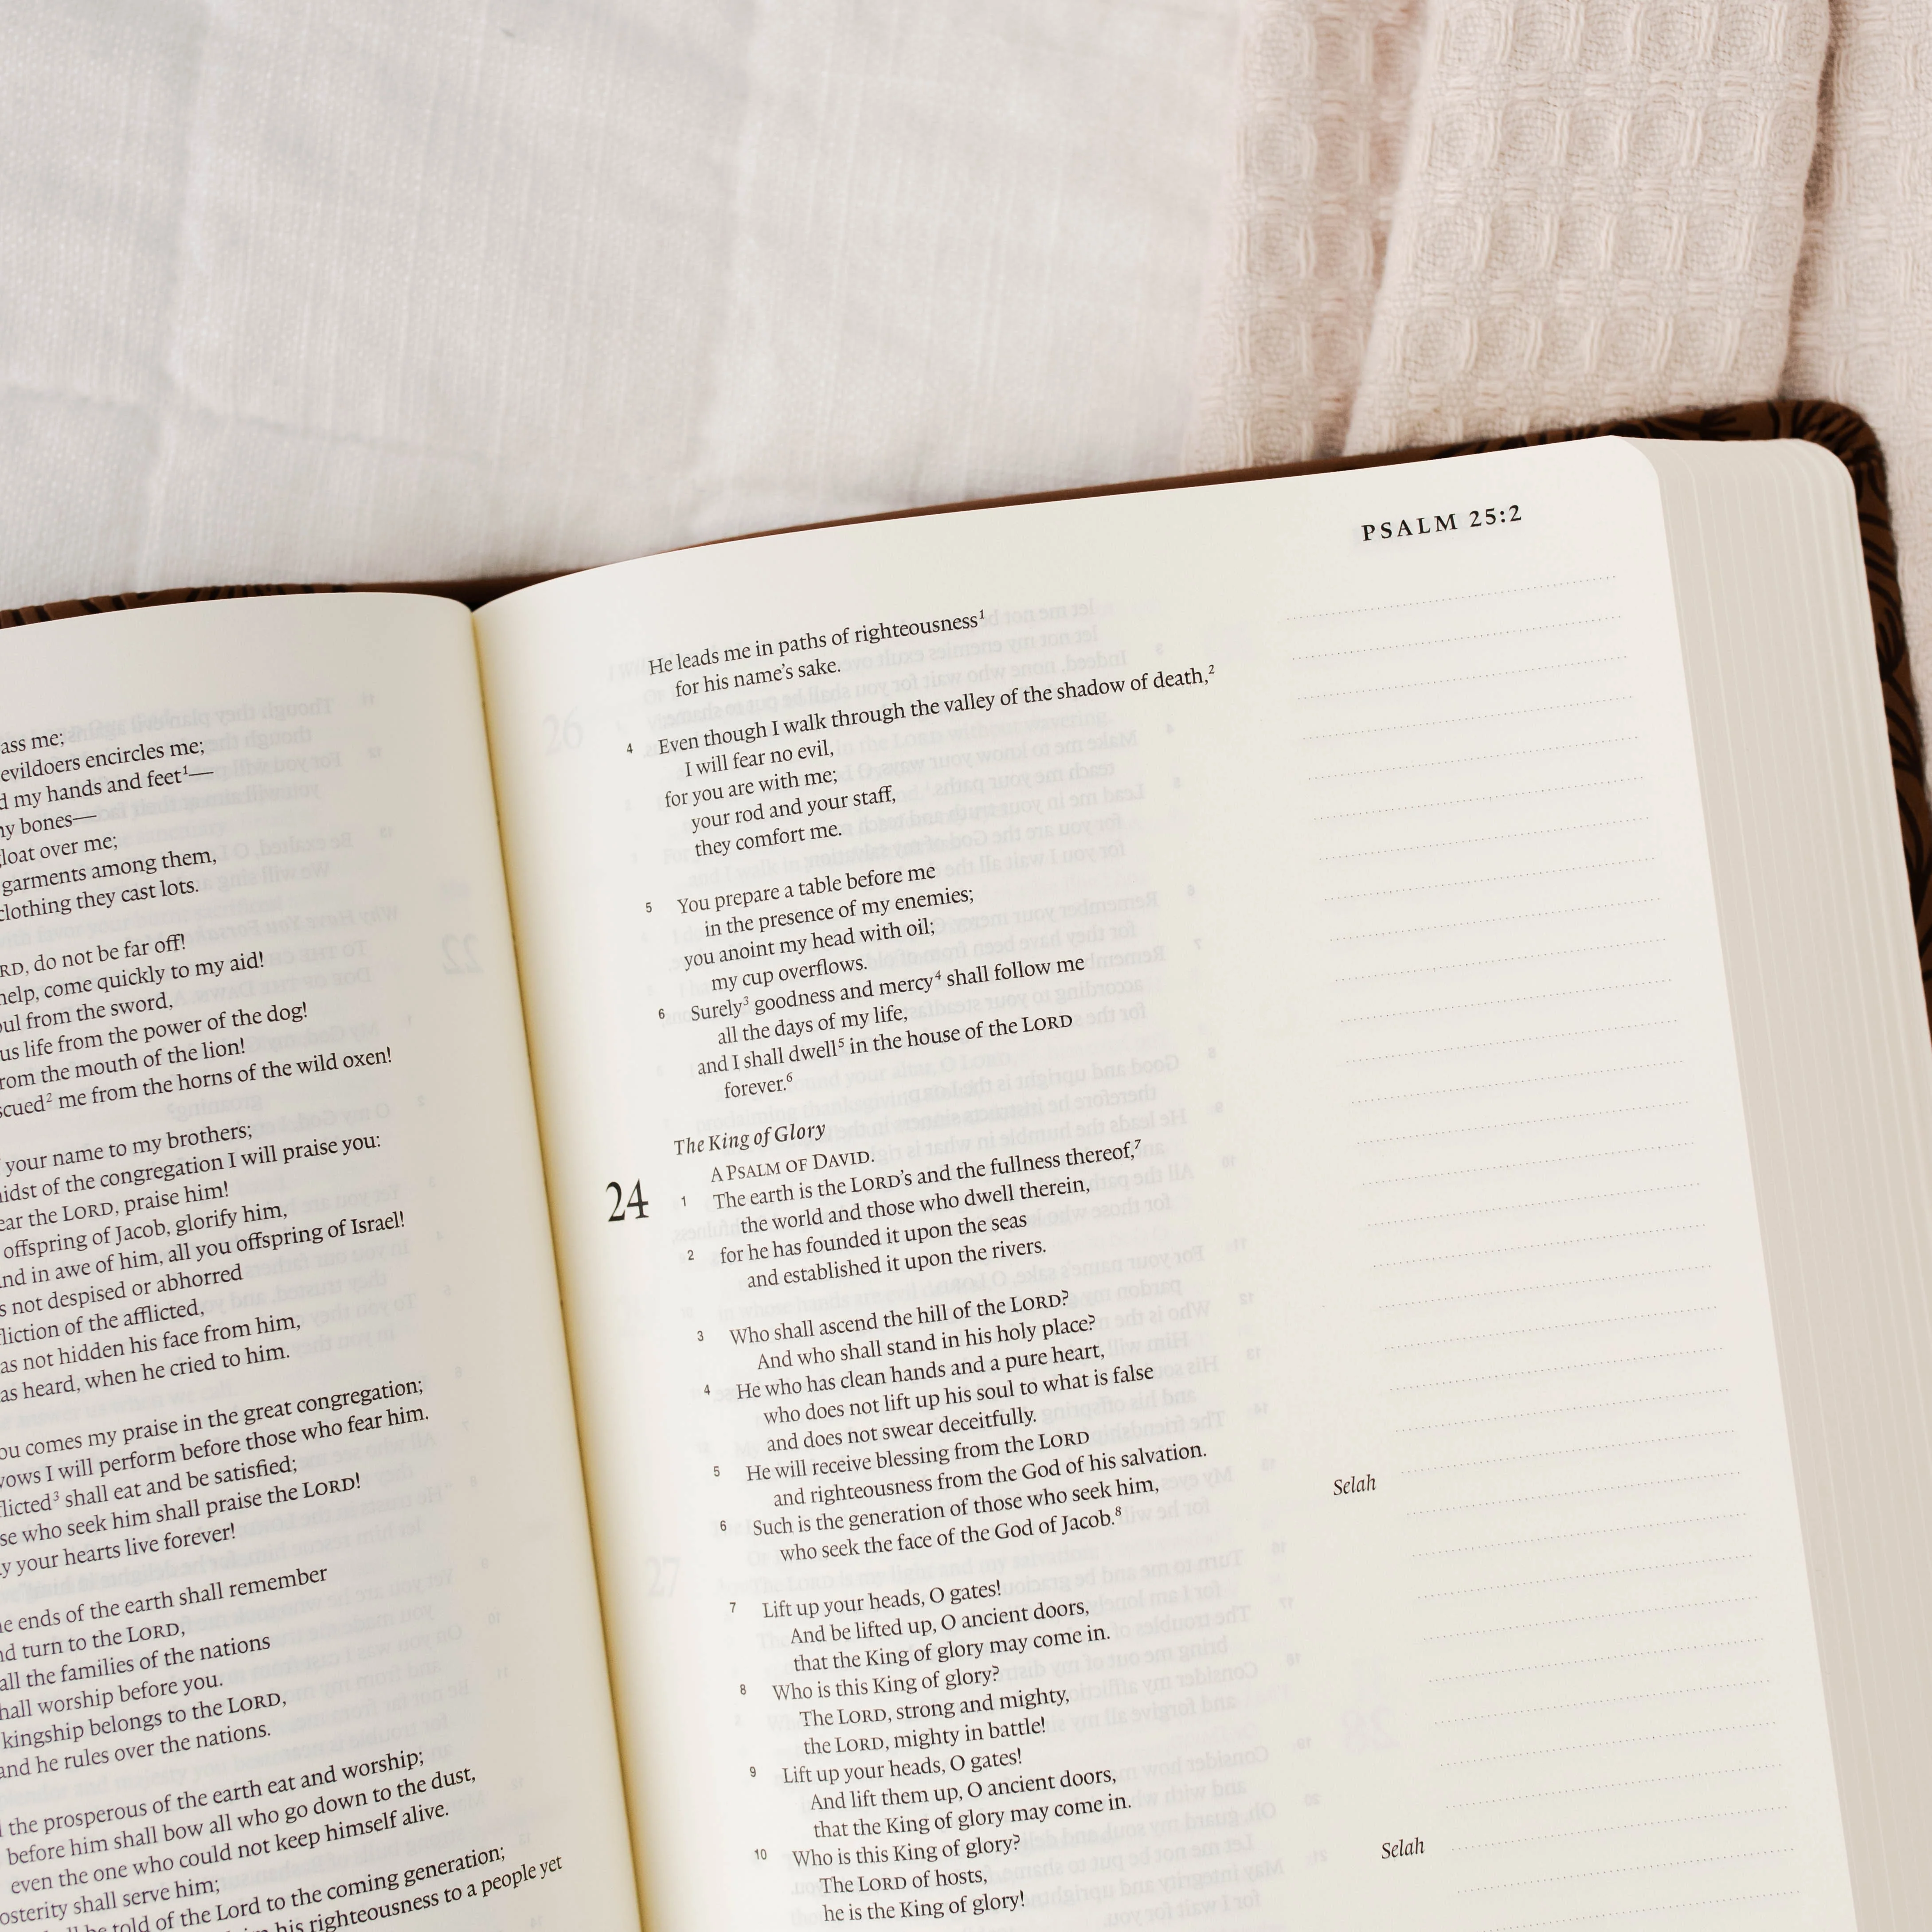 ass me;
evildoers encircles me;
my hands and feet¹—
bones—
gloat over me;
garments among them,
clothing they cast lots.
do not be far off!
help, come quickly to my aid!
from the sword,
life from the power of the dog!
from the mouth of the lion!
me from the horns of the wild oxen!
your name to my brothers;
of the congregation I will praise you:
the LORD, praise him!
offspring of Jacob, glorify him,
in awe of him, all you offspring of Israel!
not despised or abhorred
of the afflicted,
not hidden his face from him,
heard, when he cried to him.
comes my praise in the great congregation;
vows I will perform before those who fear him.
shall eat and be satisfied;
who seek him shall praise the LORD!
your hearts live forever!
ends of the earth shall remember
turn to the LORD,
all the families of the nations
shall worship before you.
kingship belongs to the LORD,
and he rules over the nations.
the prosperous of the earth eat and worship;
before him shall bow all who go down to the dust,
even the one who could not keep himself alive.
shall serve him;
told of the Lord to the coming generation;
his righteousness to a people yet
PSALM 25:2
He leads me in paths of righteousness¹
for his name's sake.
4 Even though I walk through the valley of the shadow of death,²
I will fear no evil,
for you are with me;
your rod and your staff,
they comfort me.
5 You prepare a table before me
in the presence of my enemies;
you anoint my head with oil;
my cup overflows.
6 Surely³ goodness and mercy⁴ shall follow me
all the days of my life,
and I shall dwell⁵ in the house of the LORD
forever.⁶
The King of Glory
A PSALM OF DAVID.
24 1 The earth is the LORD's and the fullness thereof,⁷
the world and those who dwell therein,
2 for he has founded it upon the seas
and established it upon the rivers.
3 Who shall ascend the hill of the LORD?
And who shall stand in his holy place?
4 He who has clean hands and a pure heart,
who does not lift up his soul to what is false
and does not swear deceitfully.
5 He will receive blessing from the LORD
and righteousness from the God of his salvation.
6 Such is the generation of those who seek him,
who seek the face of the God of Jacob.⁸ Selah
7 Lift up your heads, O gates!
And be lifted up, O ancient doors,
that the King of glory may come in.
8 Who is this King of glory?
The LORD, strong and mighty,
the LORD, mighty in battle!
9 Lift up your heads, O gates!
And lift them up, O ancient doors,
that the King of glory may come in.
10 Who is this King of glory?
The LORD of hosts,
he is the King of glory! Selah